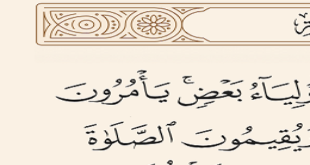 لِيَآءُ بَعْضٍۚ يَأْمُرُونَ
يُقِيمُونَ ٱلصَّلَوٰةَ